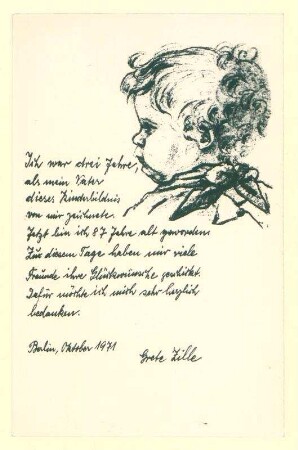 Ich war drei Jahre,
als mein Vater
dieses Kinderbildnis
von mir zeichnete.
Jetzt bin ich 87 Jahre alt geworden.
Zu diesem Tage haben mir viele
Freunde ihre Glückwünsche geschickt.
Dafür möchte ich mich sehr herzlich
bedanken.
Berlin, Oktober 1971
Grete Zille